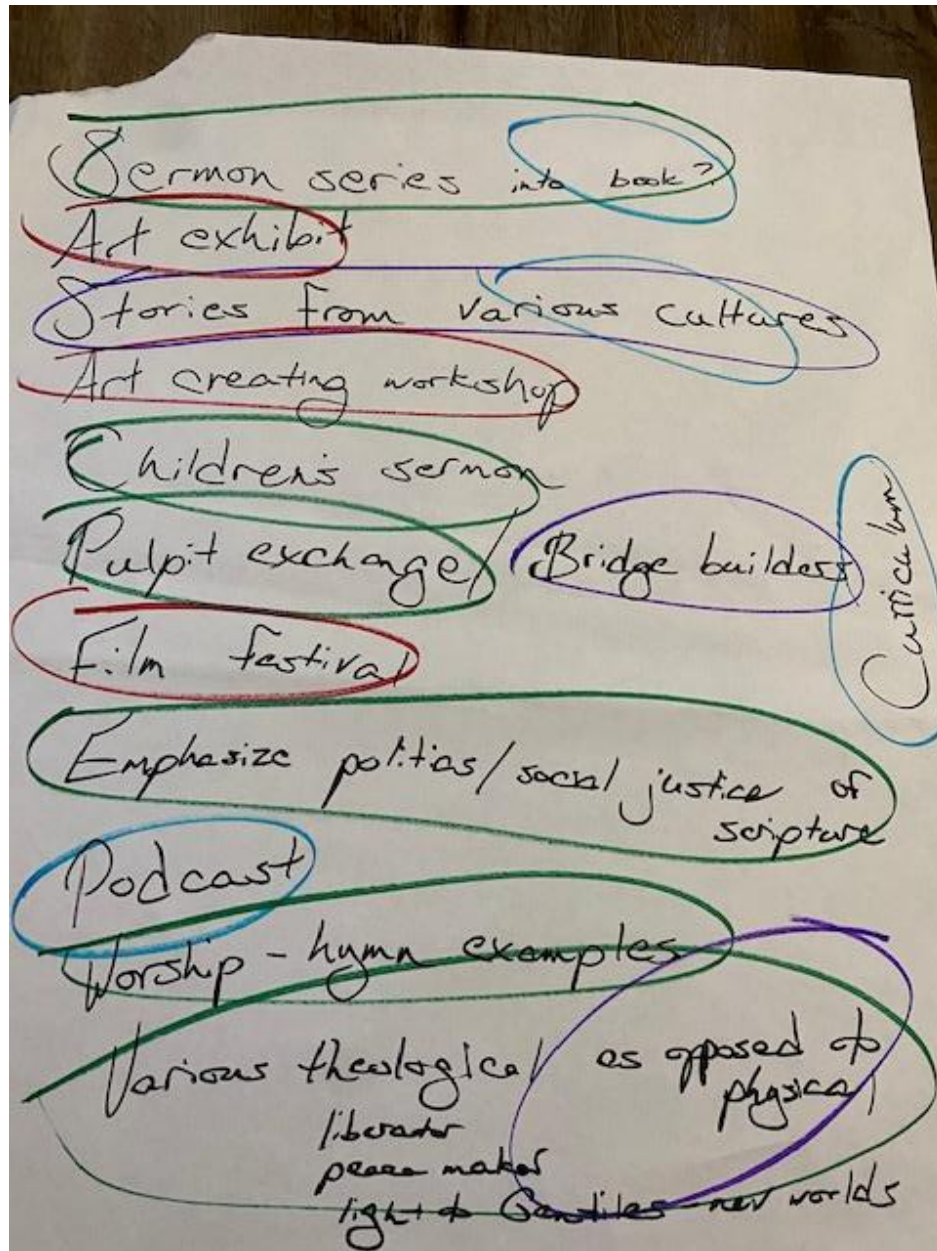 Sermon series into book?
Art exhibit
Stories from various cultures
Art creating workshop
Children's sermon
Pulpit exchange/ Bridge builders
Curriculum
Film festival
Emphasize politics/social justice of
scripture
Podcast
Worship - hymn examples
Various theological as opposed to
physical
liberator
peace maker
light to Gentiles - new worlds